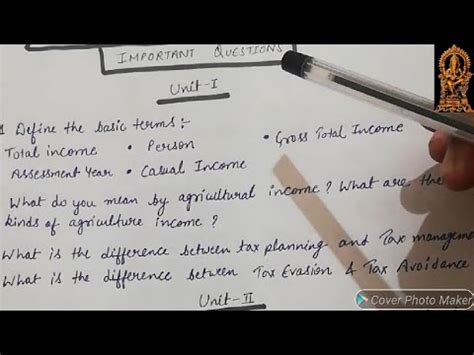 IMPORTANT QUESTIONS
Unit-I
1 Define the basic terms :-
Total income • Person • Gross Total Income
Assessment Year • Casual Income
What do you mean by agricultural income? What are the
kinds of agriculture income?
What is the difference between tax planning and Tax managem
What is the difference between Tax Evasion & Tax Avoidance
Unit-II
Cover Photo Maker